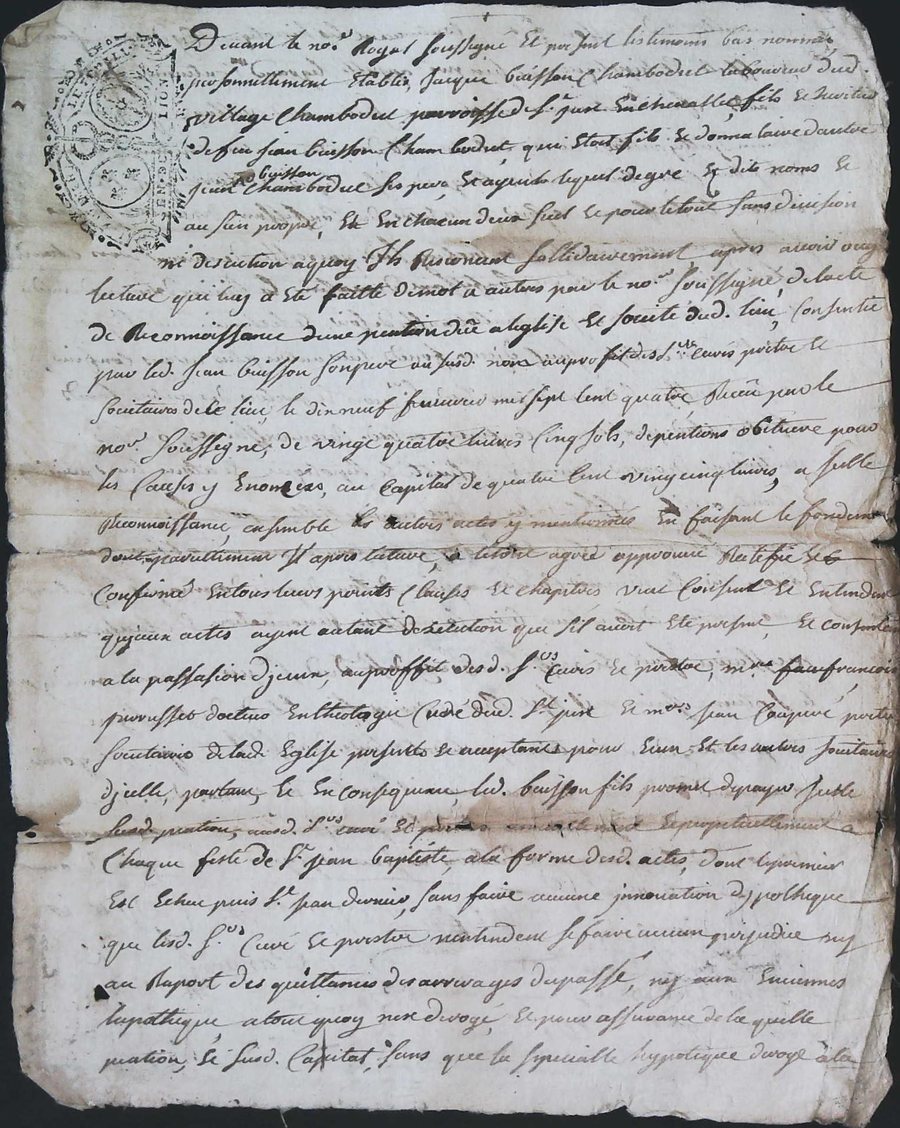 Devant le no.re Royal soussigné Et presant les temoins bas nommés
personnellement Etablis, Jacque buisson Chambodut laboureur dud.
village Chambodut parroisse de S.t jure En chevallet, fils Et heritier
de feu jean buisson Chambodut, qui Etoit fils Et donnataire d'autre
jean buisson Chambodut ses pere, Et ayeuls lequel de gré Es dits noms Et
au sien propre, Et En chacun d'eux seul Et pour le tout sans division
ni discution a quoy Il Renonceant sollidairement, apres avoir ouy
lecture qui luy a Eté faitte de mot a autres par le no.re soussigné de l'acte
de Reconnoissance d'une pention düe a léglise Et societé dud. lieu, Consentie
par led. jean buisson son pere au susd. nom au proffit des s.rs curés pretre Et
societaires de ce lieu, le dix neuf fevrier mil sept cent quatre, Reçüe par le
no.re soussigné, de vingt quatre livres Cinq sols, de pentions obituere pour
les Causes y Enoncées, au capital de quatre cent vingt cinq livres, a susd.
Reconnoissance, ensemble les autres actes y mentionnés En faisant le fondement
dont pareillement Il a pris lecture, a le tout agréé approuvé Ratefié Et
Confirmé En tous leurs points Clauses Et chapitres veut Consent Et Entend
qu'jceux actes ayent autant d'exécution que s'il avoit Eté present, Et consenti
a la passasion d'jceux, au proffit desd. S.rs curés Et pretre, m.re françois
docteur En theologie Curé dud. St jure Et m.re jean Couperé pretre
societaire de lad. Eglise presents Et acceptants pour Eux Et les autres societaires
d'jcelle, partant, Et En consequance, led. buisson fils promet de payer
susd. pention, ausd. S.rs curé Et pretre Et perpetuellement a
Chaque feste de S.t jean baptiste, a la forme desd. actes, dont le premier
Est Echeu puis St. jean dernier, sans faire aucune jnnovation d'ypotheque
que lesd. S.rs Curé Et pretre n'entendent se faire aucun prejudice ny
au Raport des quittances des arrerages du passé, ny aux Enciennes
hipotheque a tout quoy n'est derogé, Et pour assurance de la quelle
pention, Et susd. Capital, sans que la specialle hypoteque deroge a la